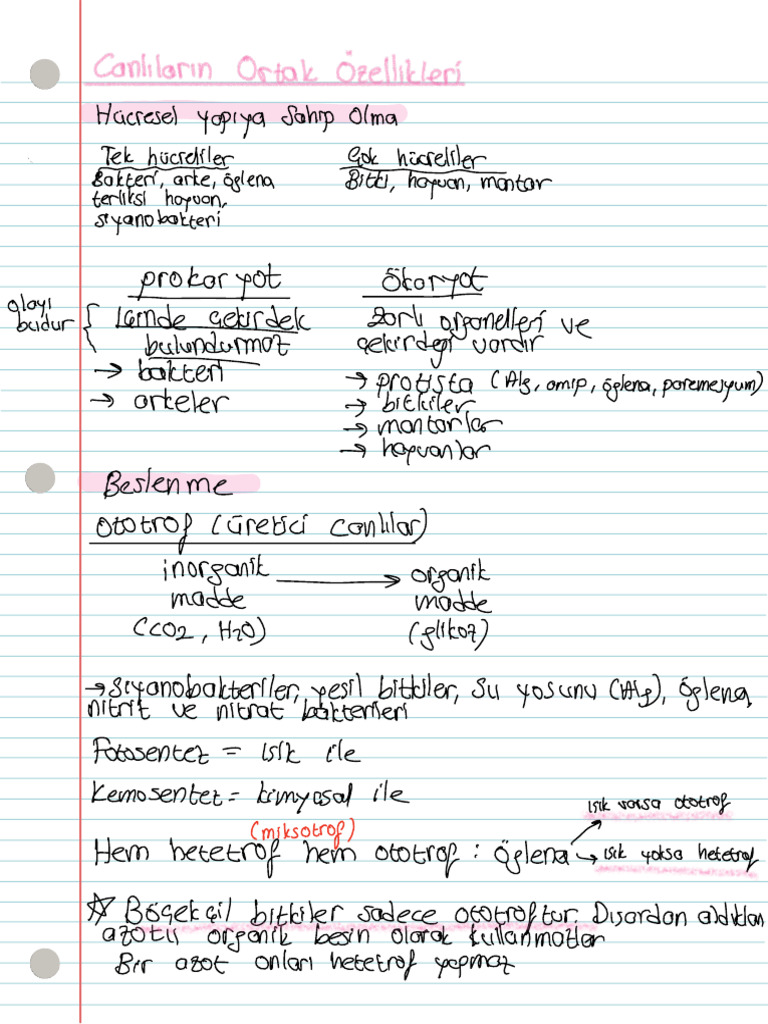 Canlıların Ortak Özellikleri
Hücresel yapıya sahip olma
Tek hücreliler
Bakteri, arke, öglena
terliksi hayvan,
siyanobakteri
Çok hücreliler
Bitki, hayvan, mantar
prokaryot
olayı budur
İçinde çekirdek
bulundurmaz
→ bakteri
→ arkeler
Ökaryot
Zarlı organelleri ve
çekirdeği vardır
→ protista (Alg, amip, öglena, paremesyum)
→ bitkiler
→ mantarlar
→ hayvanlar
Beslenme
Ototrof (üretici canlılar)
inorganik madde (CO2, H2O) → organik madde (glikoz)
→ siyanobakteriler, yeşil bitkiler, su yosunu (Alg), öglena,
nitrit ve nitrat bakterileri
Fotosentez = ışık ile
Kemosentez = kimyasal ile
(miksotrof)
Hem hetetrof hem ototrof : Öglena
ışık varsa ototrof
→ ışık yoksa hetetrof
☆ Böcekçil bitkiler sadece ototroftur. Dışardan aldıkları
azotlu organik besin olarak kullanmazlar
Bir azot onları hetetrof yapmaz